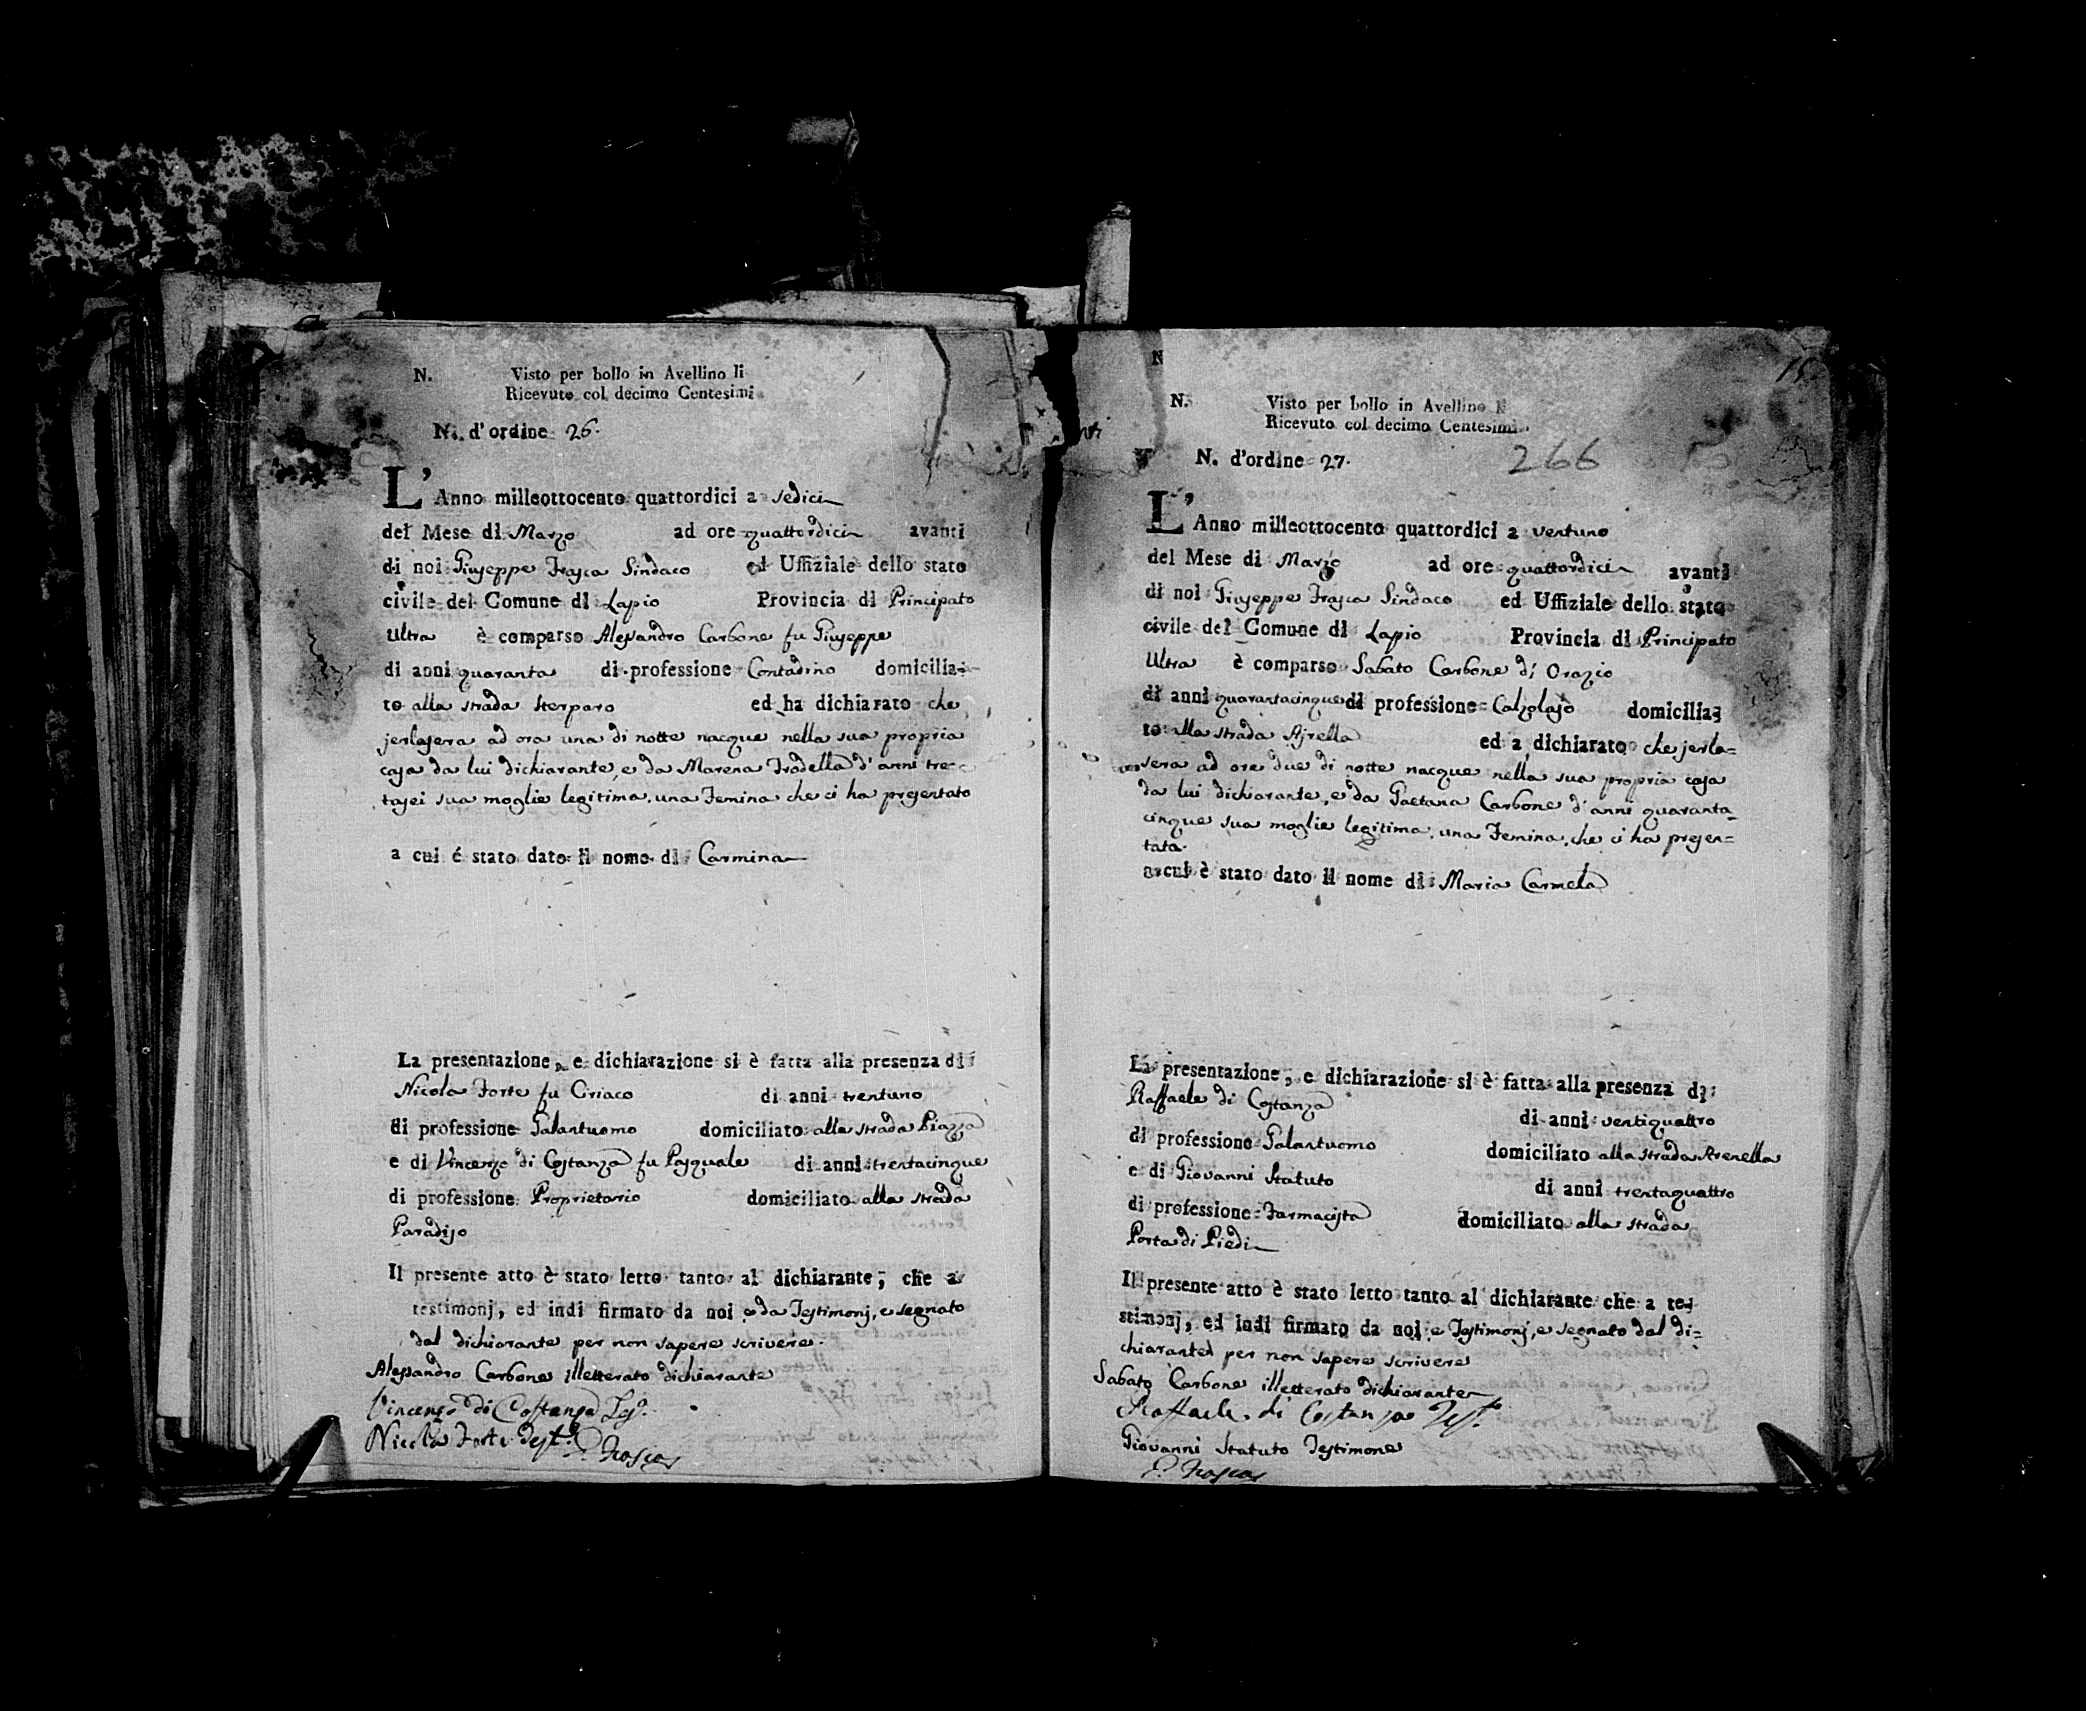 N. Visto per bollo in Avellino li
Ricevuto col decimo Centesimi
N. d'ordine 26.
L'Anno milleottocento quattordici a sedici
del Mese di Marzo ad ore quattordici avanti
di noi Giuseppe Frasca Sindaco ed Uffiziale dello stato
civile del Comune di Lapio Provincia di Principato
Ultra è comparso Alessandro Carbone fu Giuseppe
di anni quaranta di professione Contadino domicilia-
to alla strada Sterparo ed ha dichiarato che
jerlasera ad ora una di notte nacque nella sua propria
casa da lui dichiarante, e da Marena Tradella d'anni tren-
tasei sua moglie legitima, una Femina che ci ha presentato
a cui é stato dato il nome di Carmina
La presentazione, e dichiarazione si è fatta alla presenza di
Nicola Forte fu Ciriaco di anni trentuno
di professione Galantuomo domiciliato alla strada Piazza
e di Vincenzo di Costanza fu Pasquale di anni trentacinque
di professione Proprietario domiciliato alla strada
Paradiso
Il presente atto è stato letto tanto al dichiarante, che a
testimonj, ed indi firmato da noi e da Testimonj, e segnato
dal dichiarante per non sapere scrivere.
Alessandro Carbone illetterato dichiarante
Vincenzo di Costanza
Nicola Forte Test.
G. Frasca
15
N
N. Visto per bollo in Avellino li
Ricevuto col decimo Centesimi
N. d'ordine 27. 266
L'Anno milleottocento quattordici a ventuno
del Mese di Marzo ad ore quattordici avanti
di noi Giuseppe Frasca Sindaco ed Uffiziale dello stato
civile del Comune di Lapio Provincia di Principato
Ultra è comparso Sabato Carbone di Orazio
di anni quarantacinque di professione Calzolajo domicilia-
to alla strada Ajrella ed a dichiarato che jerla=
sera ad ore due di notte nacque nella sua propria casa
da lui dichiarante, e da Gaetana Carbone d'anni quaranta-
cinque sua moglie legitima, una Femina, che ci ha presen=
tata
a cui è stato dato il nome di Maria Carmela
La presentazione, e dichiarazione si è fatta alla presenza di
Raffaele di Costanza di anni ventiquattro
di professione Galantuomo domiciliato alla strada Arenella
e di Giovanni Statuto di anni trentaquattro
di professione Farmacista domiciliato alla strada
Porta di Piedi
Il presente atto è stato letto tanto al dichiarante che a te-
stimonj, ed indi firmato da noi e Testimonj, e segnato dal di=
chiarante per non sapere scrivere
Sabato Carbone illetterato dichiarante
Raffaele di Costanza Test.
Giovanni Statuto Testimone
G. Frasca